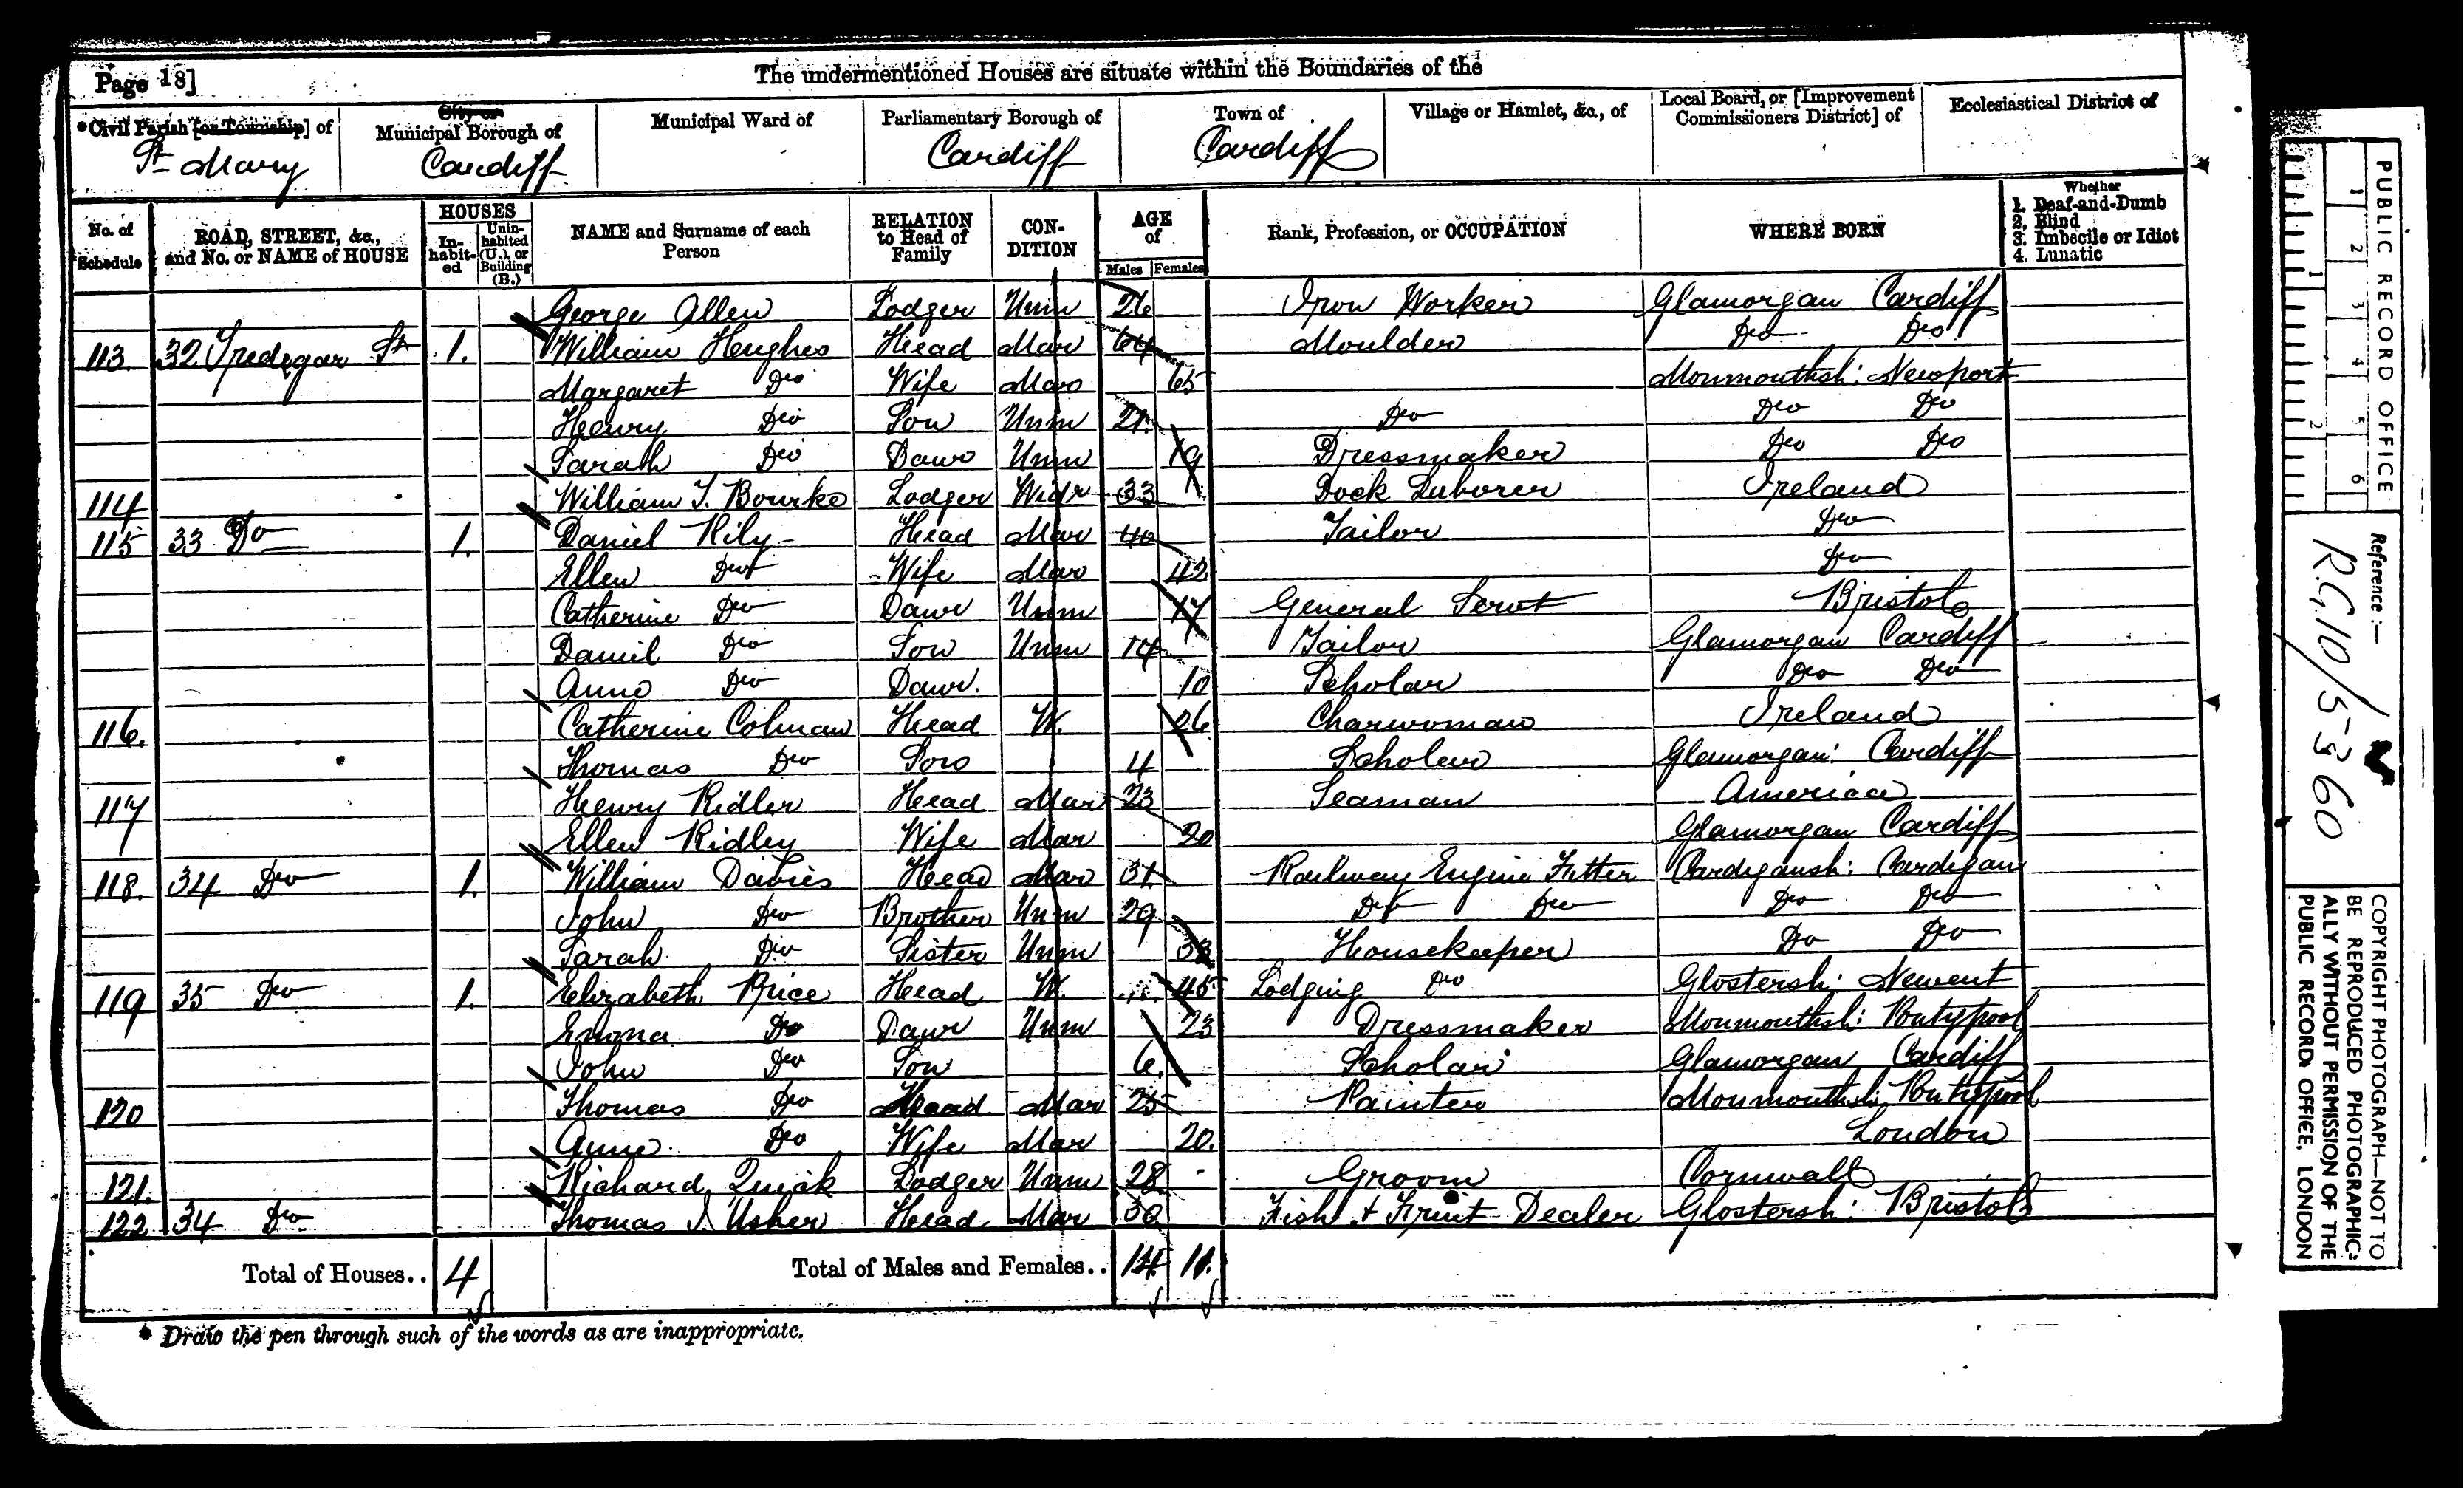 Page 18]
The undermentioned Houses are situate within the Boundaries of the
*Civil Parish [or Township] of
City or Municipal Borough of
Municipal Ward of
Parliamentary Borough of
Town of
Village or Hamlet, &c., of
Local Board, or [Improvement Commissioners District] of
Ecclesiastical District of
St Mary Cardiff Cardiff Cardiff
No. of Schedule
ROAD, STREET, &c., and No. or NAME of HOUSE
HOUSES
Inhabited
Uninhabited (U.), or Building (B.)
NAME and Surname of each Person
RELATION to Head of Family
CONDITION
AGE of
Males Females
Rank, Profession, or OCCUPATION
WHERE BORN
Whether
1. Deaf-and-Dumb
2. Blind
3. Imbecile or Idiot
4. Lunatic
George Allen Lodger Unm 26 Iron Worker Glamorgan Cardiff
113 32 Tredegar St 1. William Hughes Head Mar 64 Moulder Do Do
Margaret Do Wife Mar 65 Monmouthsh: Newport
Henry Do Son Unm 21 Do Do Do
Sarah Do Daur Unm 19 Dressmaker Do Do
114 William T. Bourke Lodger Widr 33 Dock Laborer Ireland
115 33 Do 1. Daniel Rily Head Mar 40 Tailor Do
Ellen Do Wife Mar 42 Do
Catherine Do Daur Unm 17 General Servt Bristol
Daniel Do Son Unm 14 Tailor Glamorgan Cardiff
Anne Do Daur. 10 Scholar Do Do
116. Catherine Colman Head W. 26 Charwoman Ireland
Thomas Do Son 4 Scholar Glamorgan: Cardiff
117 Henry Ridler Head Mar 23 Seaman America
Ellen Ridley Wife Mar 20 Glamorgan Cardiff
118. 34 Do 1. William Davies Head Mar 31 Railway Engine Fitter Cardigansh: Cardigan
John Do Brother Unm 29 Do Do Do Do
Sarah Do Sister Unm 33 Housekeeper Do Do
119 35 Do 1. Elizabeth Price Head W. 45 Lodging Do Glostersh: Newent
Emma Do Daur Unm 23 Dressmaker Monmouthsh: Pontypool
John Do Son 6. Scholar Glamorgan Cardiff
120 Thomas Do Head Mar 25 Painter Monmouthsh: Pontypool
Anne Do Wife Mar 20. London
121. Richard Quick Lodger Unm 28 Groom Cornwall
122 34 Do Thomas J. Usher Head Mar 30 Fish & Fruit Dealer Glostersh: Bristol
Total of Houses.. 4 Total of Males and Females.. 14 11.
* Draw the pen through such of the words as are inappropriate.
PUBLIC RECORD OFFICE
1 2 3 4 5 6
1 2
Reference:—
R.G. 10/5360
COPYRIGHT PHOTOGRAPH—NOT TO
BE REPRODUCED PHOTOGRAPHIC-
ALLY WITHOUT PERMISSION OF THE
PUBLIC RECORD OFFICE, LONDON